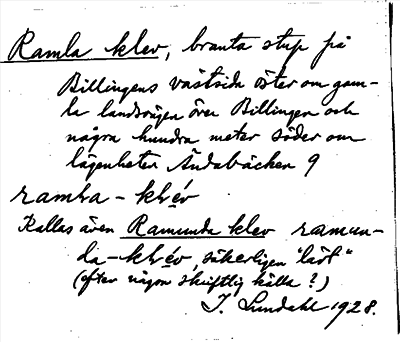 Ramla klev, branta stup på
Billingens västsida öster om gam-
la landsvägen över Billingen och
några hundra meter söder om
lägenheten Ändabäcken 9
ramla-klev
Kallas även Ramunda klev ramun-
da-klev, säkerligen "lärt"
(efter någon skriftlig källa?)
I. Lundahl 1928.